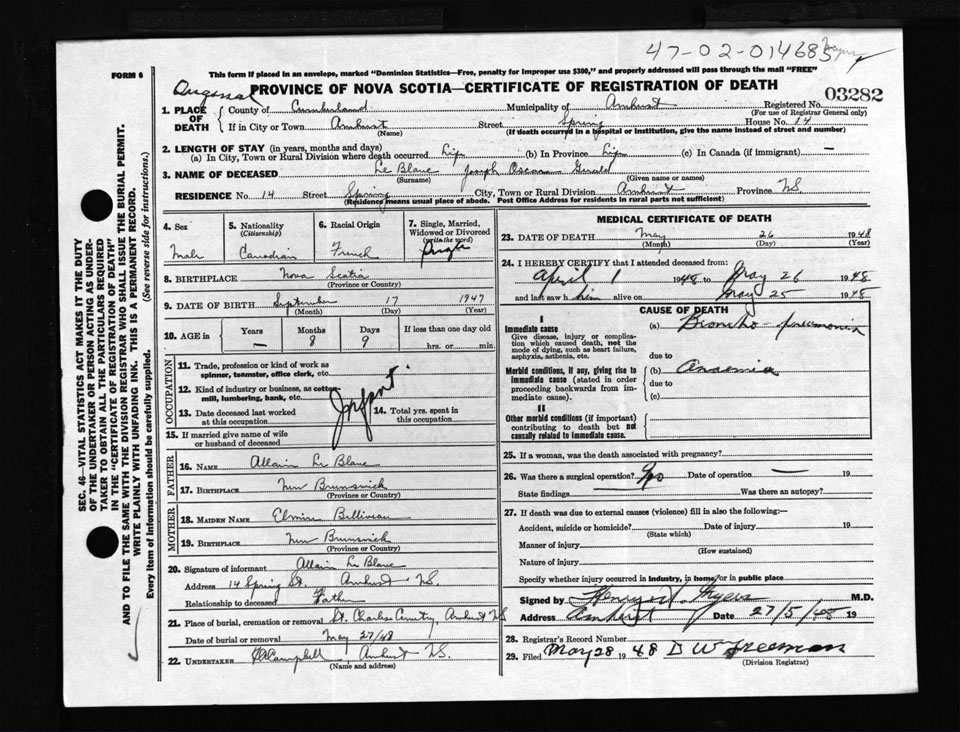 47-02-014685
FORM 6
This form if placed in an envelope, marked "Dominion Statistics—Free, penalty for improper use $300," and properly addressed will pass through the mail "FREE"
PROVINCE OF NOVA SCOTIA—CERTIFICATE OF REGISTRATION OF DEATH
03282
1. PLACE OF DEATH
County of Cumberland Municipality of Amherst Registered No.
(For use of Registrar General only)
If in City or Town Amherst Street Spring House No. 14
(Name) (If death occurred in a hospital or institution, give the name instead of street and number)
2. LENGTH OF STAY (in years, months and days)
(a) In City, Town or Rural Division where death occurred Life (b) In Province Life (c) In Canada (if immigrant) —
3. NAME OF DECEASED Le Blanc Joseph Oscar Gerald
(Surname) (Given name or names)
RESIDENCE No. 14 Street Spring City, Town or Rural Division Amherst Province NS
(Residence means usual place of abode. Post Office Address for residents in rural parts not sufficient)
4. Sex
Male
5. Nationality
(Citizenship)
Canadian
6. Racial Origin
French
7. Single, Married, Widowed or Divorced
(write the word)
Single
8. BIRTHPLACE Nova Scotia
(Province or Country)
9. DATE OF BIRTH September 17 1947
(Month) (Day) (Year)
10. AGE in
Years Months Days If less than one day old
— 8 9 hrs. or min.
OCCUPATION
11. Trade, profession or kind of work as spinner, teamster, office clerk, etc.
12. Kind of industry or business, as cotton-mill, lumbering, bank, etc.
Infant
13. Date deceased last worked at this occupation
14. Total yrs. spent in this occupation
15. If married give name of wife or husband of deceased
FATHER
16. NAME Allain Le Blanc
17. BIRTHPLACE New Brunswick
(Province or Country)
MOTHER
18. MAIDEN NAME Billiveau
19. BIRTHPLACE New Brunswick
(Province or Country)
20. Signature of informant Allain Le Blanc
Address 14 Spring St. Amherst NS.
Relationship to deceased Father
21. Place of burial, cremation or removal St. Charles Cemetry, Amherst NS
Date of burial or removal May 27/48
22. UNDERTAKER Campbell, Amherst NS.
(Name and address)
MEDICAL CERTIFICATE OF DEATH
23. DATE OF DEATH May 26 1948
(Month) (Day) (Year)
24. I HEREBY CERTIFY that I attended deceased from:
April 1 1948 to May 26 1948
and last saw him alive on May 25 1948
CAUSE OF DEATH
I
Immediate cause
Give disease, injury or complication which caused death, not the mode of dying, such as heart failure, asphyxia, asthenia, etc.
(a) Broncho-pneumonia
due to
Morbid conditions, if any, giving rise to immediate cause (stated in order proceeding backwards from immediate cause).
(b) Anaemia
due to
(c)
II
Other morbid conditions (if important) contributing to death but not causally related to immediate cause.
25. If a woman, was the death associated with pregnancy?
26. Was there a surgical operation? No Date of operation — 19
State findings Was there an autopsy?
27. If death was due to external causes (violence) fill in also the following:—
Accident, suicide or homicide? Date of injury 19
(State which)
Manner of injury
(How sustained)
Nature of injury
Specify whether injury occurred in industry, in home or in public place
Signed by M.D.
Address Amherst Date 27/5/48 19
28. Registrar's Record Number
29. Filed May 28 1948 D W Freeman
(Division Registrar)
SEC. 46—VITAL STATISTICS ACT MAKES IT THE DUTY
OF THE UNDERTAKER OR PERSON ACTING AS UNDER-
TAKER TO OBTAIN ALL THE PARTICULARS REQUIRED
IN THE "CERTIFICATE OF REGISTRATION OF DEATH"
AND TO FILE THE SAME WITH THE DIVISION REGISTRAR WHO SHALL ISSUE THE BURIAL PERMIT.
WRITE PLAINLY WITH UNFADING INK. THIS IS A PERMANENT RECORD.
Every item of information should be carefully supplied. (See reverse side for instructions.)